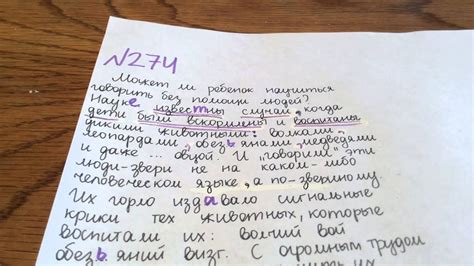 №274
Может ли ребенок научиться
говорить без помощи людей?
Науке известны случаи, когда
дети были вскормлены и воспитаны
дикими животными: волками,
леопардами, обезьянами, медведями
и даже ... овцой. И „говорили" эти
люди-звери не на каком-либо
человеческом языке, а по-звериному.
Их горло издавало сигнальные
крики тех животных, которые
воспитали их: волчий вой
обезьяний визг. С огромным трудом
их